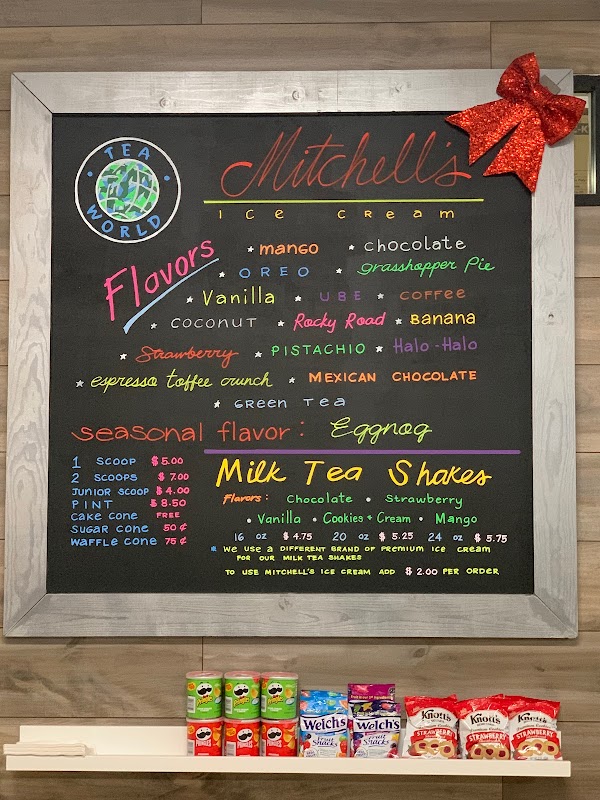 TEA WORLD
Mitchell's
ICE CREAM
Flavors
* mango * chocolate
* OREO * grasshopper Pie
* Vanilla * UBE * COFFEE
* COCONUT * Rocky Road * BANANA
* Strawberry * PISTACHIO * Halo-Halo
* espresso toffee crunch * MEXICAN CHOCOLATE
* GREEN TEA
seasonal flavor: Eggnog
1 SCOOP $5.00
2 SCOOPS $7.00
JUNIOR SCOOP $4.00
PINT $8.50
CAKE CONE FREE
SUGAR CONE 50¢
WAFFLE CONE 75¢
Milk Tea Shakes
Flavors: Chocolate • Strawberry
• Vanilla • Cookies + Cream • Mango
16 oz $4.75 20 oz $5.25 24 oz $5.75
* WE USE A DIFFERENT BRAND OF PREMIUM ICE CREAM
FOR OUR MILK TEA SHAKES
TO USE MITCHELL'S ICE CREAM ADD $2.00 PER ORDER
PRINGLES PRINGLES PRINGLES
Welch's Welch's
Fruit Snacks Fruit Snacks
Knott's Knott's Knott's
STRAWBERRY STRAWBERRY STRAWBERRY